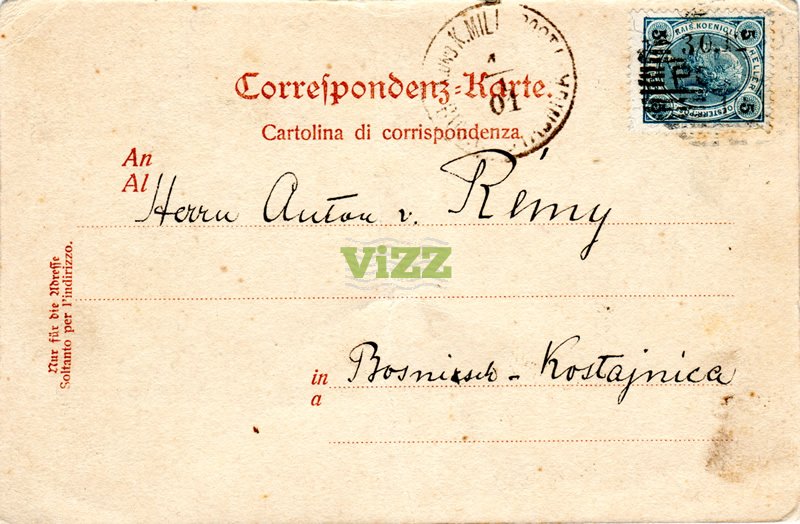 K. MIL
POST
1
01
KAIS. KOENIGL.
5 HELLER 5
5 5
Correspondenz-Karte.
Cartolina di corrispondenza.
An
Al
Herrn Anton v. Rémy
ViZZ
in Bosnisch-Kostajnica
a
Nur für die Adresse
Soltanto per l'indirizzo.